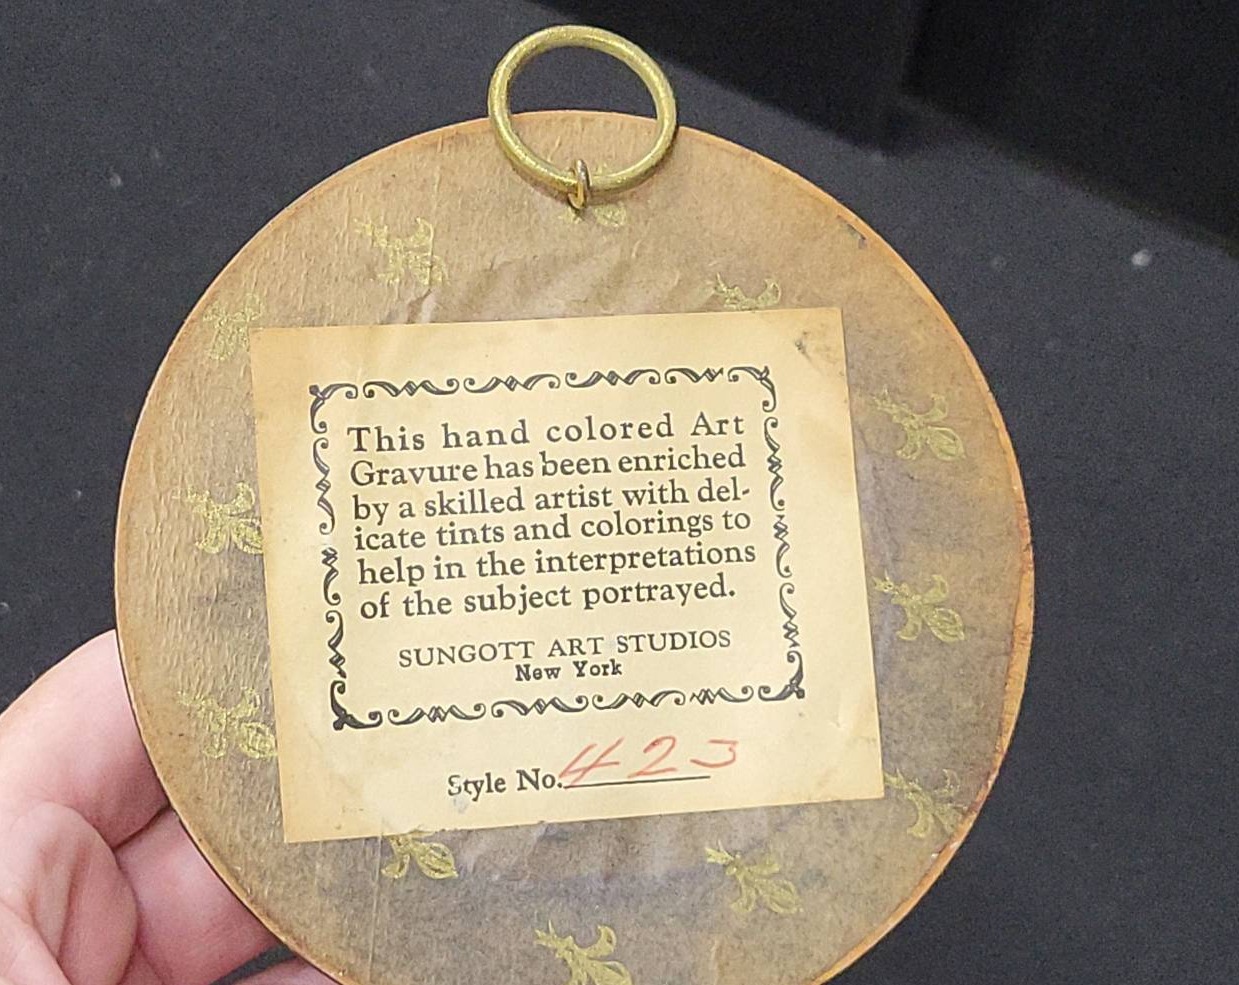 This hand colored Art
Gravure has been enriched
by a skilled artist with del-
icate tints and colorings to
help in the interpretations
of the subject portrayed.
SUNGOTT ART STUDIOS
New York
Style No. 423